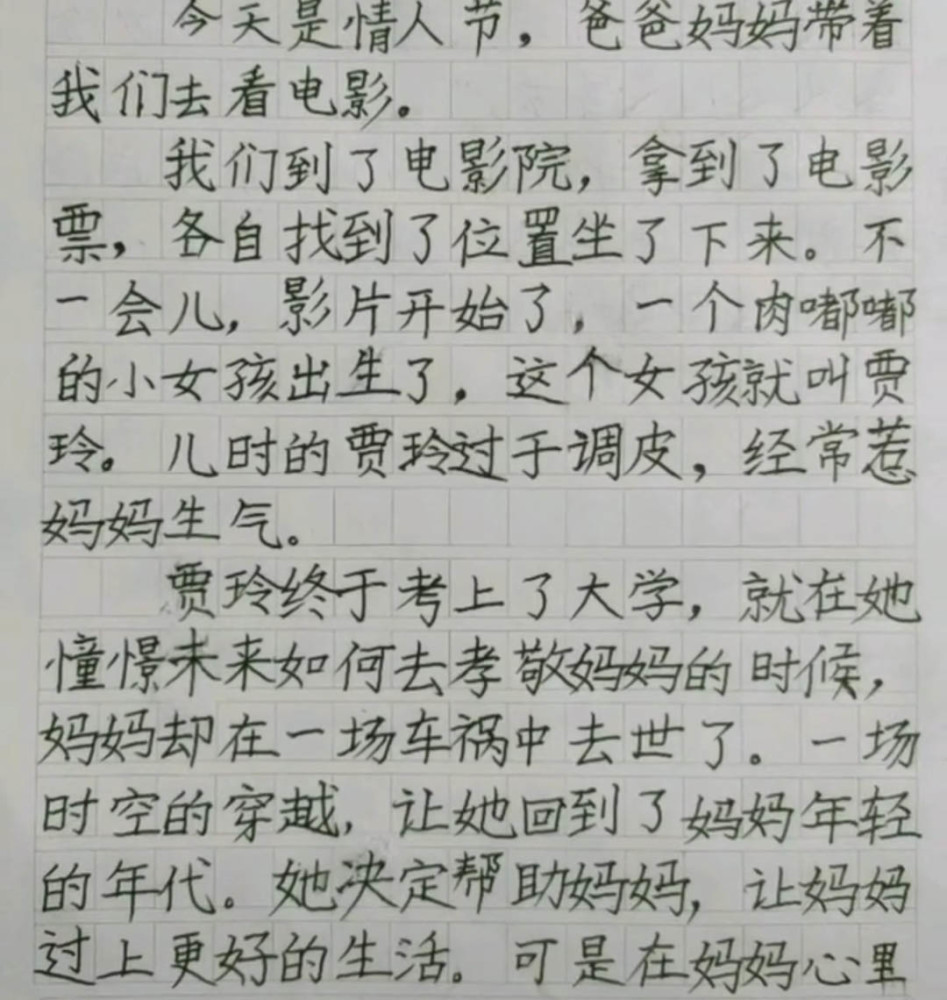 今天是情人节，爸爸妈妈带着
我们去看电影。
我们到了电影院，拿到了电影
票，各自找到了位置坐了下来。不
一会儿，影片开始了，一个肉嘟嘟
的小女孩出生了，这个女孩就叫贾
玲。儿时的贾玲过于调皮，经常惹
妈妈生气。
贾玲终于考上了大学，就在她
憧憬未来如何去孝敬妈妈的时候，
妈妈却在一场车祸中去世了。一场
时空的穿越，让她回到了妈妈年轻
的年代。她决定帮助妈妈，让妈妈
过上更好的生活。可是在妈妈心里